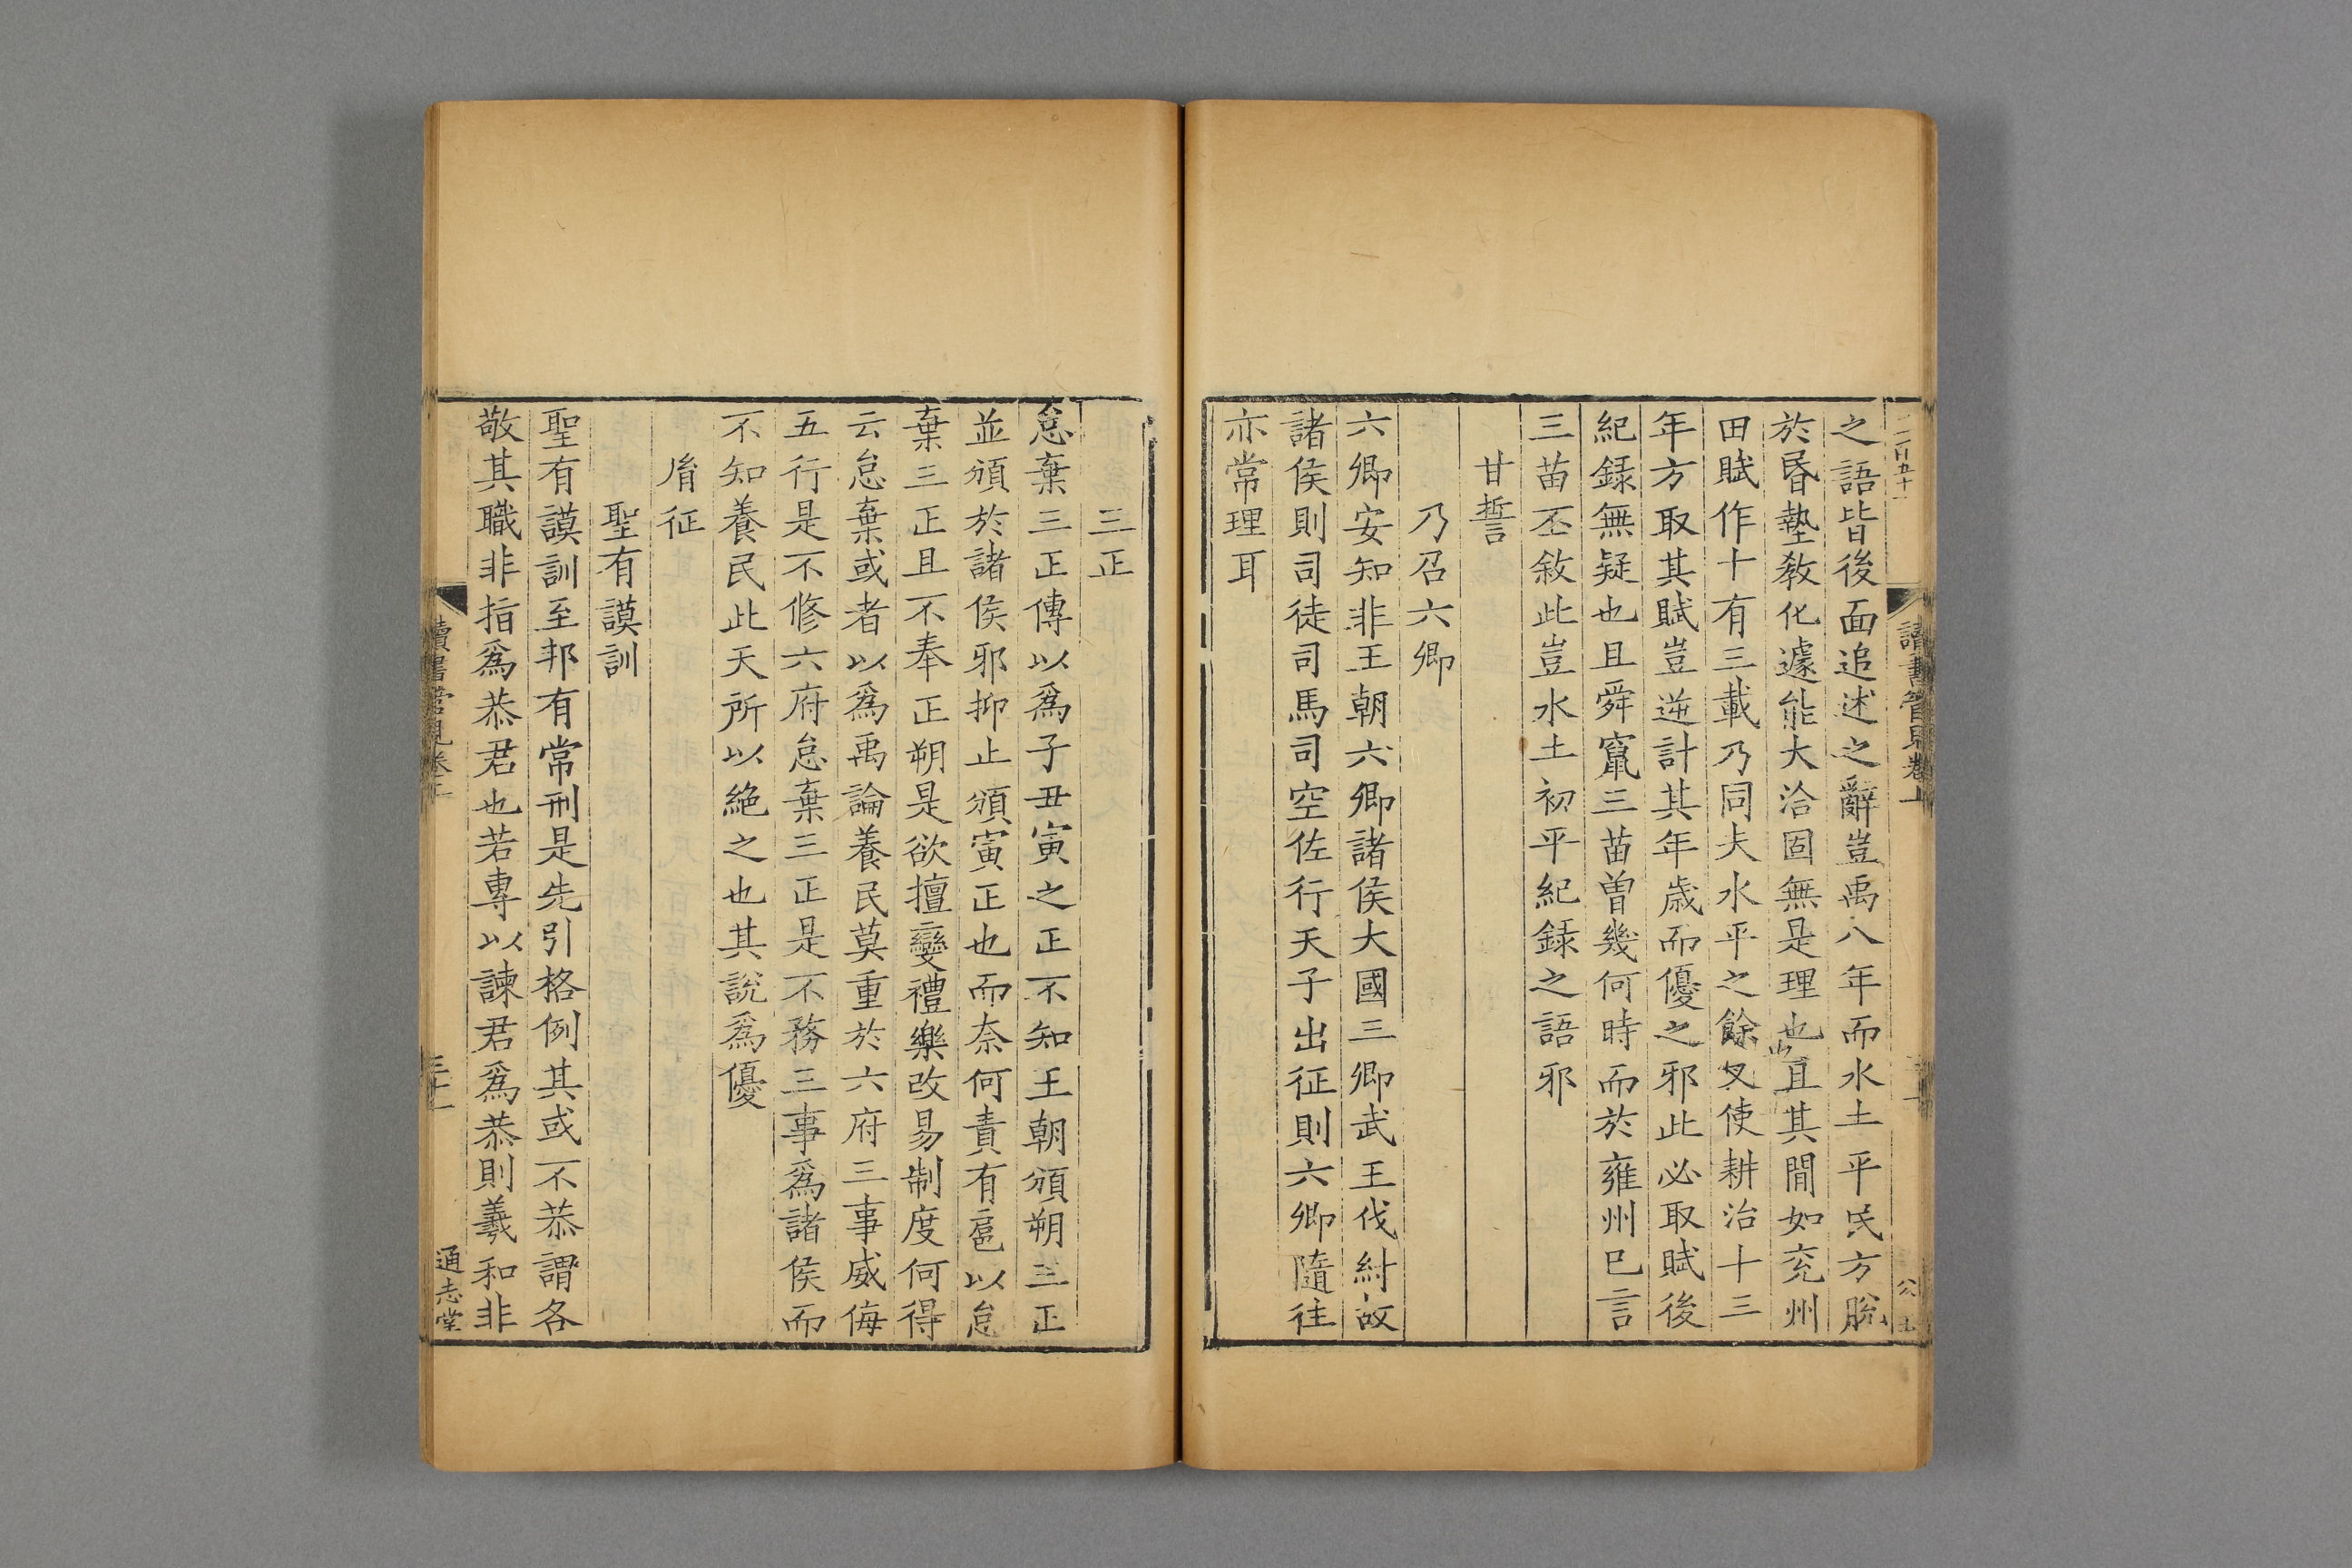 之語皆後面追述之辭豈禹八年而水土平民方脫
於昬墊教化遽能大洽固無是理也且其間如兖州
田賦作十有三載乃同夫水平之餘又使耕治十三
年方取其賦豈逆計其年歲而優之邪此必取賦後
紀錄無疑也且舜竄三苗曽幾何時而於雍州巳言
三苗丕敘此豈水土初平紀録之語邪
甘誓
乃召六卿
六卿安知非王朝六卿諸侯大國三卿武王伐紂故
諸侯則司徒司馬司空佐行天子出征則六卿隨往
亦常理耳
讀書管見卷上
三正
怠棄三正傳以爲子丑寅之正不知王朝頒朔三正
並頒於諸侯邪抑止頒寅正也而奈何責有扈以怠
棄三正且不奉正朔是欲擅變禮樂改易制度何得
云怠棄或者以爲禹論養民莫重於六府三事威侮
五行是不修六府怠棄三正是不務三事爲諸侯而
不知養民此天所以絶之也其說爲優
胤征
聖有謨訓
聖有謨訓至邦有常刑是先引格例其或不恭謂各
敬其職非指爲恭君也若專以諫君爲恭則羲和非
讀書管見卷上
通志堂